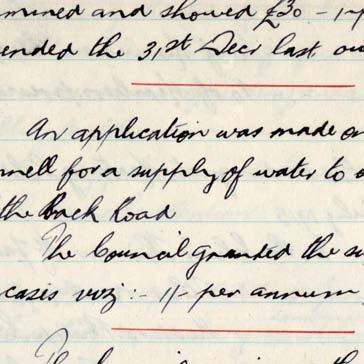 mined and showed £30 - 1
ended the 31st Decr last
An application was made on
nell for a supply of water to
the Back Road
The Council granted the
cases viz :- 1/- per annum